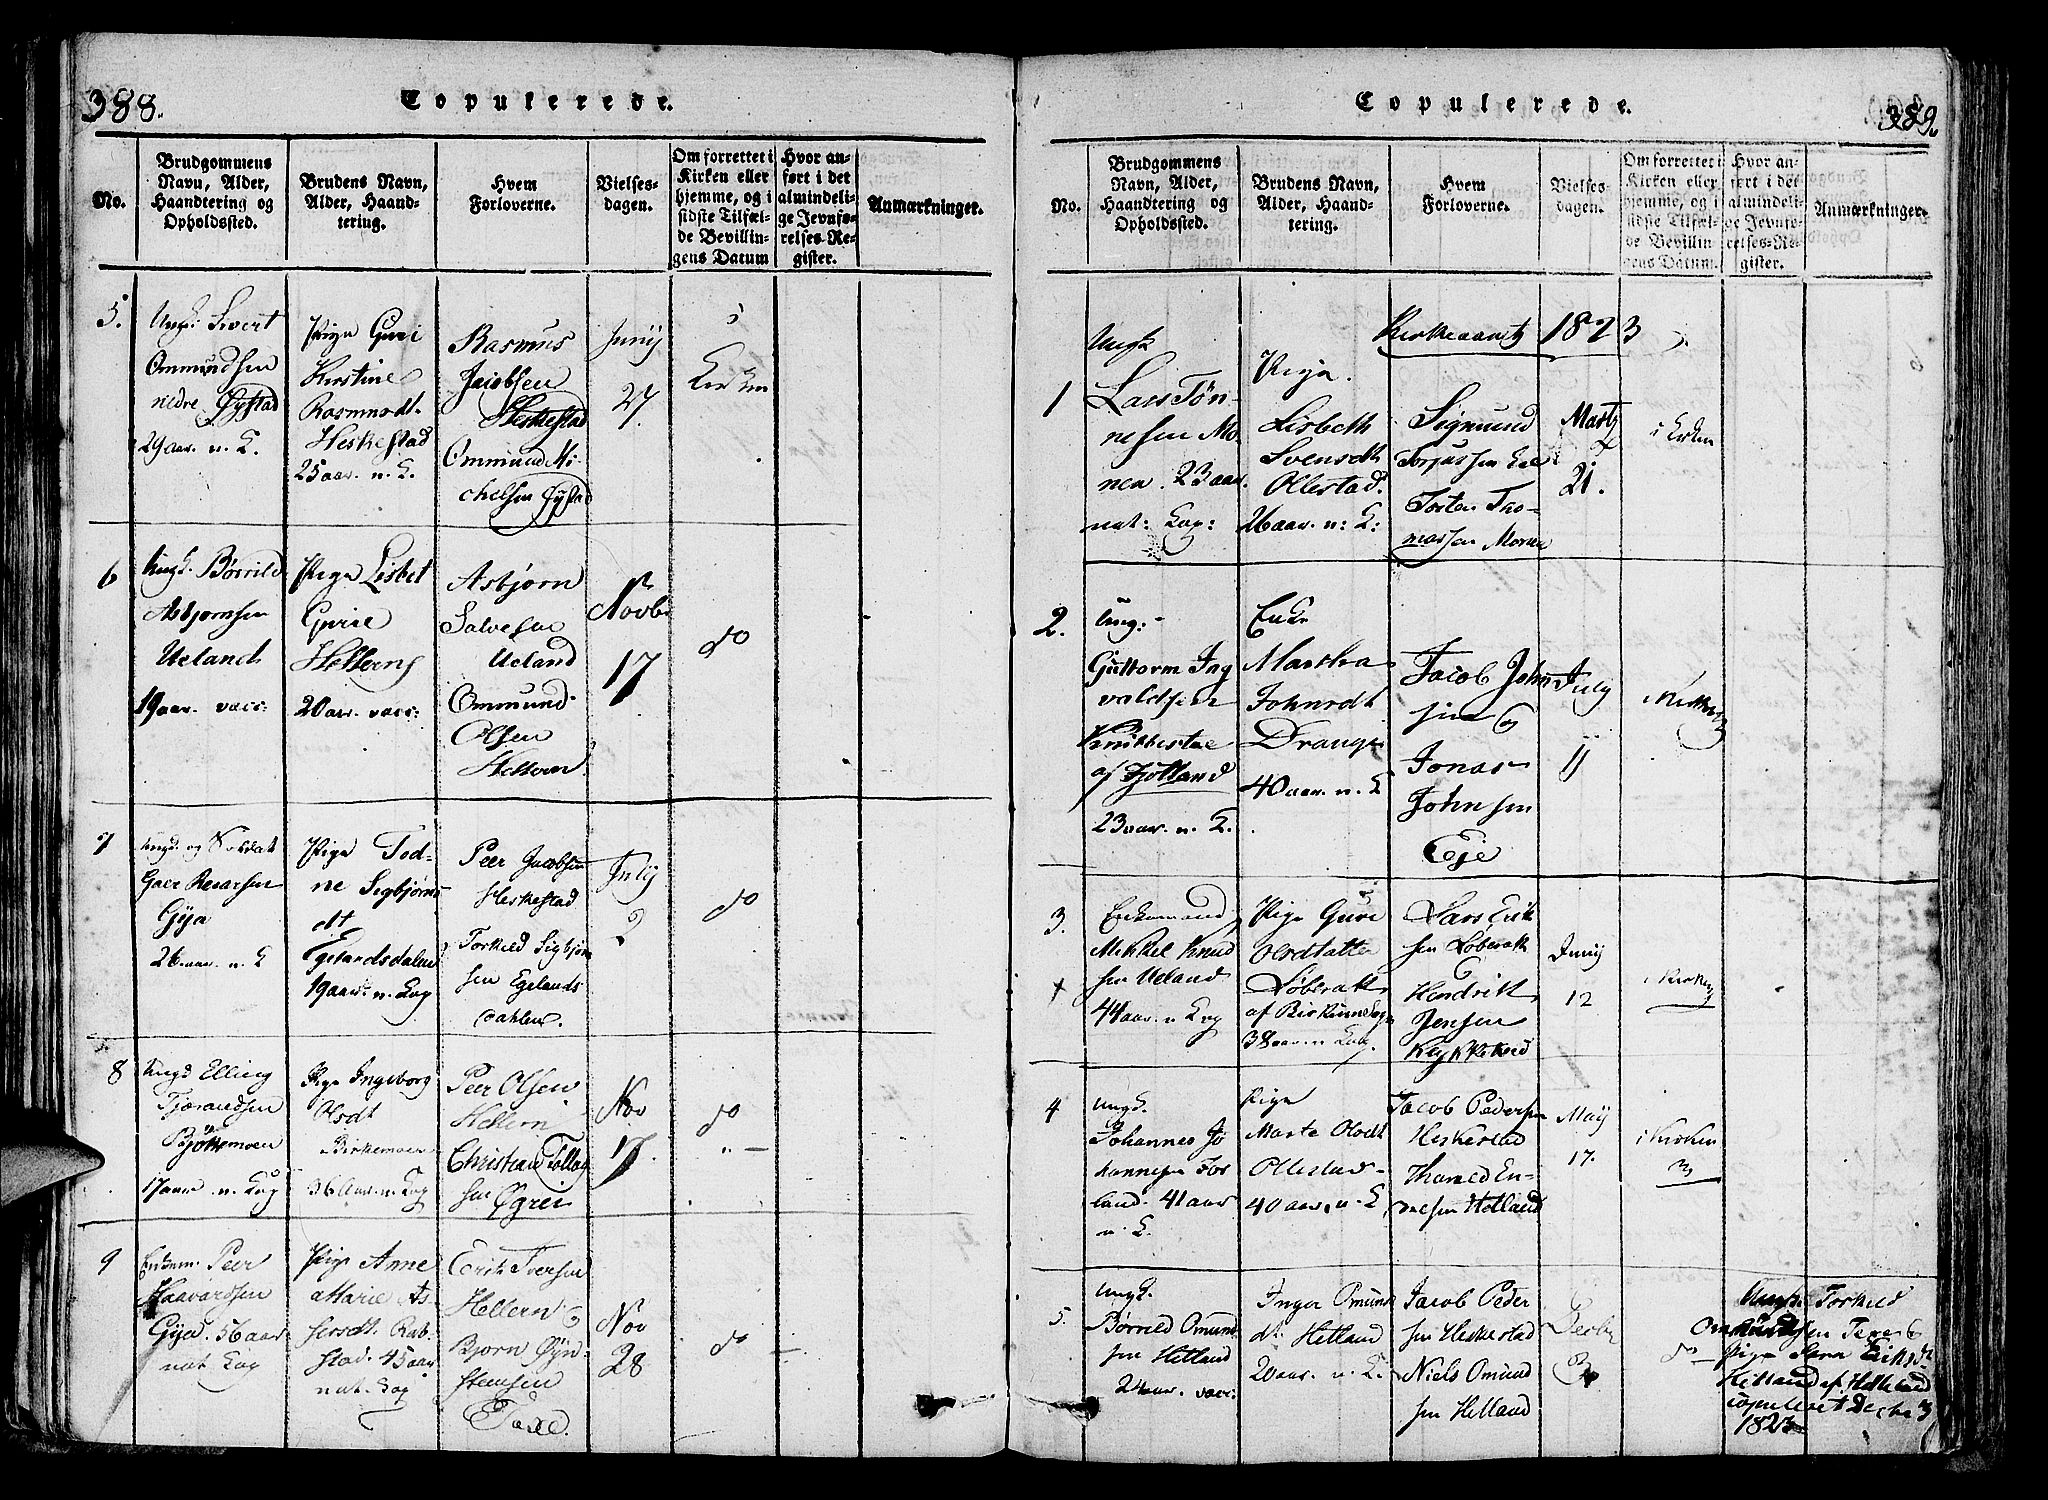 388.
Copulerede.
No.
Brudgommens
Navn, Alder,
Haandtering og
Opholdssted.
Brudens Navn,
Alder, Haand-
tering.
Hvem
Forloverne.
Vielses-
dagen.
Om forrettet i
Kirken eller
hjemme, og i
sidste Tilfæl-
de Bevillin-
gens Datum
Hvor an-
ført i det
almindeli-
ge Jevnfø-
relses-Re-
gister.
Anmærkninger.
5.
Ungk: Sivert
Ommundsen
nedre Øystad
29 aar. n. K.
Pige Guri
Kirstine
Rasmusdt.
Heskestad
25 aar. n. K.
Rasmus
Jacobsen
Heskestad
Ommund Mi-
chelsen Øystad
Junij
27.
i
Kirken
6
Ungk. Børrild
Asbjørnsen
Ueland
19 aar. vacc:
Pige Lisbet
Hellern
20 aar. vacc:
Asbjørn
Salvesen
Ueland
Ommund
Olsen
Hellern
Novbr
17
do
7
Ungk. og Soldat
Gya
26 aar. n. K
Pige Tod-
ne Sigbjørns
dt
Egelandsdalen
19 aar. n. Kop
Peer Jacobsen
Heskestad
Torkild Sigbjørn
sen Egelands
dahlen.
July
2
do
8
Ungk Elling
Tjørandsen
Birkemoen
17 aar. n. Kop
Pige Ingeborg
Olsdt
Birkemoen
36 Aar. n. Kop
Peer Olsen
Hellern
Christian Tollag
sen Øgrei
Nov
17.
do
" —
9
Enkem. Peer
Haavardsen
Gya. 56 aar
nat. Kop
Pige Anne
Marie As-
sersdt. Rab-
stad. 45 aar
nat. Kop
Erich Iversen
Hellern &
Bjørn Øyn-
stensen
Nov
28
do
389.
Copulerede.
No.
Brudgommens
Navn, Alder,
Haandtering og
Opholdssted.
Brudens Navn,
Alder, Haand-
tering.
Hvem
Forloverne.
Vielses-
dagen.
Om forrettet i
Kirken eller
hjemme, og i
sidste Tilfæl-
de Bevillin
gens Datum.
Hvor an-
ført i det
almindeli-
ge Jevnfø-
relses-Re-
gister.
Anmærkninger.
Kirkeaaret 1823
1
Ungk
Lars Tøn-
nesen Mo-
nen. 23 aar.
nat: Kop:
Pige.
Lisbeth
Svensdt
Ollestad.
26 aar. n: K:
Sigmund
Torjussen
Torsten Tho-
massen
Martz
21.
i Kirken
2.
Ung: -
Guttorm Ing
valdsen
af Fjotland
23 aar. n. K.
Enke
Martha
Johnsdt
Drange
40 aar. n. K
Jacob John-
sen og
Jonas
Johnsen
Eeje
July
11
i Kirken
3.
+
Enkemand
Mikkel Knud
sen Ueland
44 aar. n Kop
Pige Guri
Olsdatter
Løbrak
38 aar. n Kop.
Lars Erik
sen Løbrak
Hendrik
Jensen
Junij
12
i Kirken
4
Ungk.
Johannes Jo
hannesen
land. 41 aar
n. K.
Pige
Marte Olsdt
Ollestad
40 aar. n. K
Jacob Pedersen
Heskestad
Maij
17.
i Kirken
5.
Ungk.
Børrild Omund
sen Hetland
24 aar. vacc:
Inger Omunds
dt. Hetland
20 aar. n. K.
Jacob Peder
sen Heskestad
Niels Omund
sen Hetland
Decbr
do —
Ungk. Torkild
Pige Sara Eriksdt
Hetland af Helleland
copuleret Decbr 3
1823